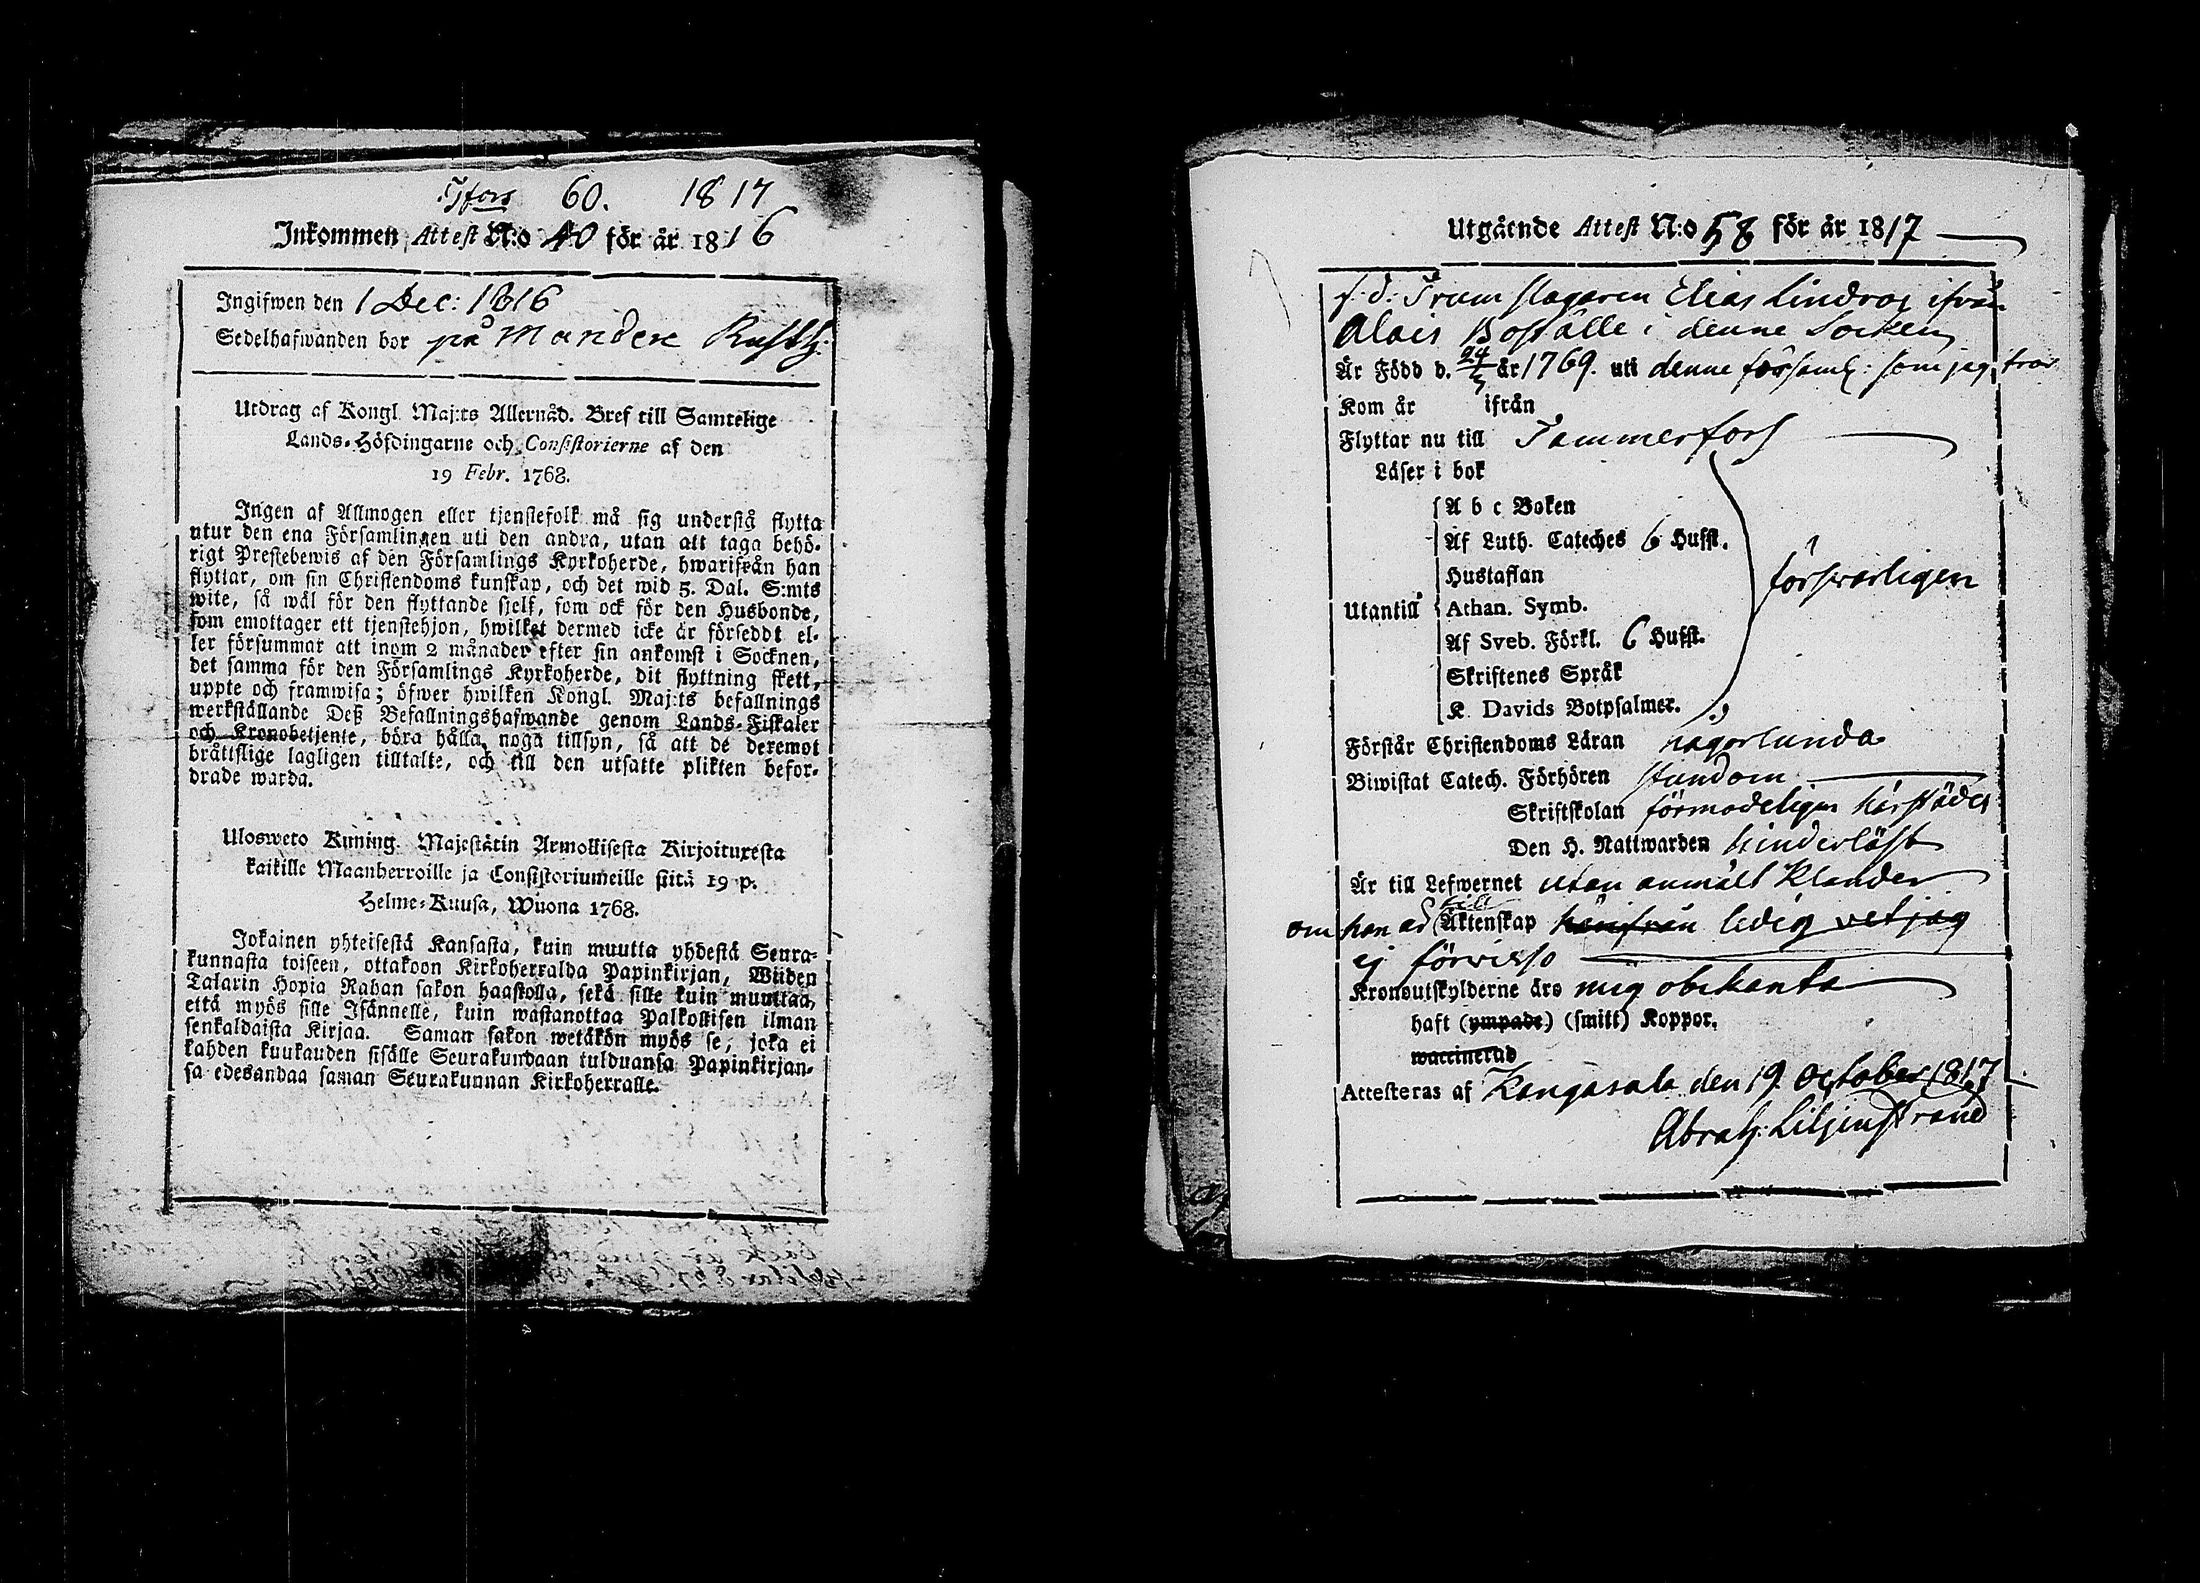 Tfors 60. 1817
Inkommen Attest N:o 40 för år 1816
Ingifwen den 1 Dec: 1816
Sedelhafwanden bor på Mandere Rusth:
Utdrag af Kongl. Maj:ts Allernåd. Bref till Samtelige
Lands-Höfdingarne och Consistorierne af den
19 Febr. 1768.
Ingen af Allmogen eller tjenstefolk må sig understå flytta
utur den ena Församlingen uti den andra, utan att taga behö-
rigt Prestebewis af den Församlings Kyrkoherde, hwarifrån han
flyttar, om sin Christendoms kunskap, och det wid 5. Dal. S:mts
wite, så wäl för den flyttande sjelf, som ock för den Husbonde,
som emottager ett tjenstehjon, hwilket dermed icke är försedt el-
ler försummar att inom 2 månader efter sin ankomst i Socknen,
det samma för den Församlings Kyrkoherde, dit flyttning skett,
uppte och framwisa; öfwer hwilken Kongl. Maj:ts befallnings
werkställande Deß Befallningshafwande genom Lands-Fiskaler
och Kronobetjente, böra hålla noga tillsyn, så att de deremot
bråttslige lagligen tilltalte, och till den utsatte plikten befor-
drade warda.
Ulosweto Kuning. Majestätin Armollisesta Kirjoituxesta
kaikille Maanherroille ja Consistoriumeille siitä 19 p.
Helme-Kuusa, Wuona 1768.
Jokainen yhteisestä Kansasta, kuin muutta yhdestä Seura-
kunnasta toiseen, ottakoon Kirkoherralda Papinkirjan, Wiiden
Talarin Hopia Rahan sakon haastolla, sekä sille kuin muuttaa,
että myös sille Isännelle, kuin wastanottaa Palkollisen ilman
senkaldaista Kirjaa. Saman sakon wetäkön myös se, joka ei
kahden kuukauden sisälle Seurakundaan tulduansa Papinkirjan-
sa edesandaa saman Seurakunnan Kirkoherralle.
Utgående Attest N:o 58 för år 1817
f. d. Trumslagaren Elias Lindros ifrån
Alais Boställe i denne Socken
Är Född d. 24/3 år 1769. uti denne församl: som jag tror
Kom år ifrån
Flyttar nu till Tammerfors
Läser i bok
A b c Boken
Af Luth. Cateches 6 Hufst.
Hustaflan
Utantill Athan. Symb. försvarligen
Af Sveb. Förkl. 6 Hufst.
Skriftenes Språk
K. Davids Botpsalmer.
Förstår Christendoms Läran någorlunda
Biwistat Catech. Förhören stundom
Skriftskolan förmodeligen härstädes
Den H. Nattwarden hinderlöst
Är till Lefwernet utan anmält Klander
till
om han är Äktenskap härifrån ledig vet jag
ej förvisso
Kronoutskylderne äro mig obekanta
haft (ympade) (smitt) Koppor.
waccinerad
Attesteras af Kangasala den 19 October 1817
Abrah: Liljenstrand